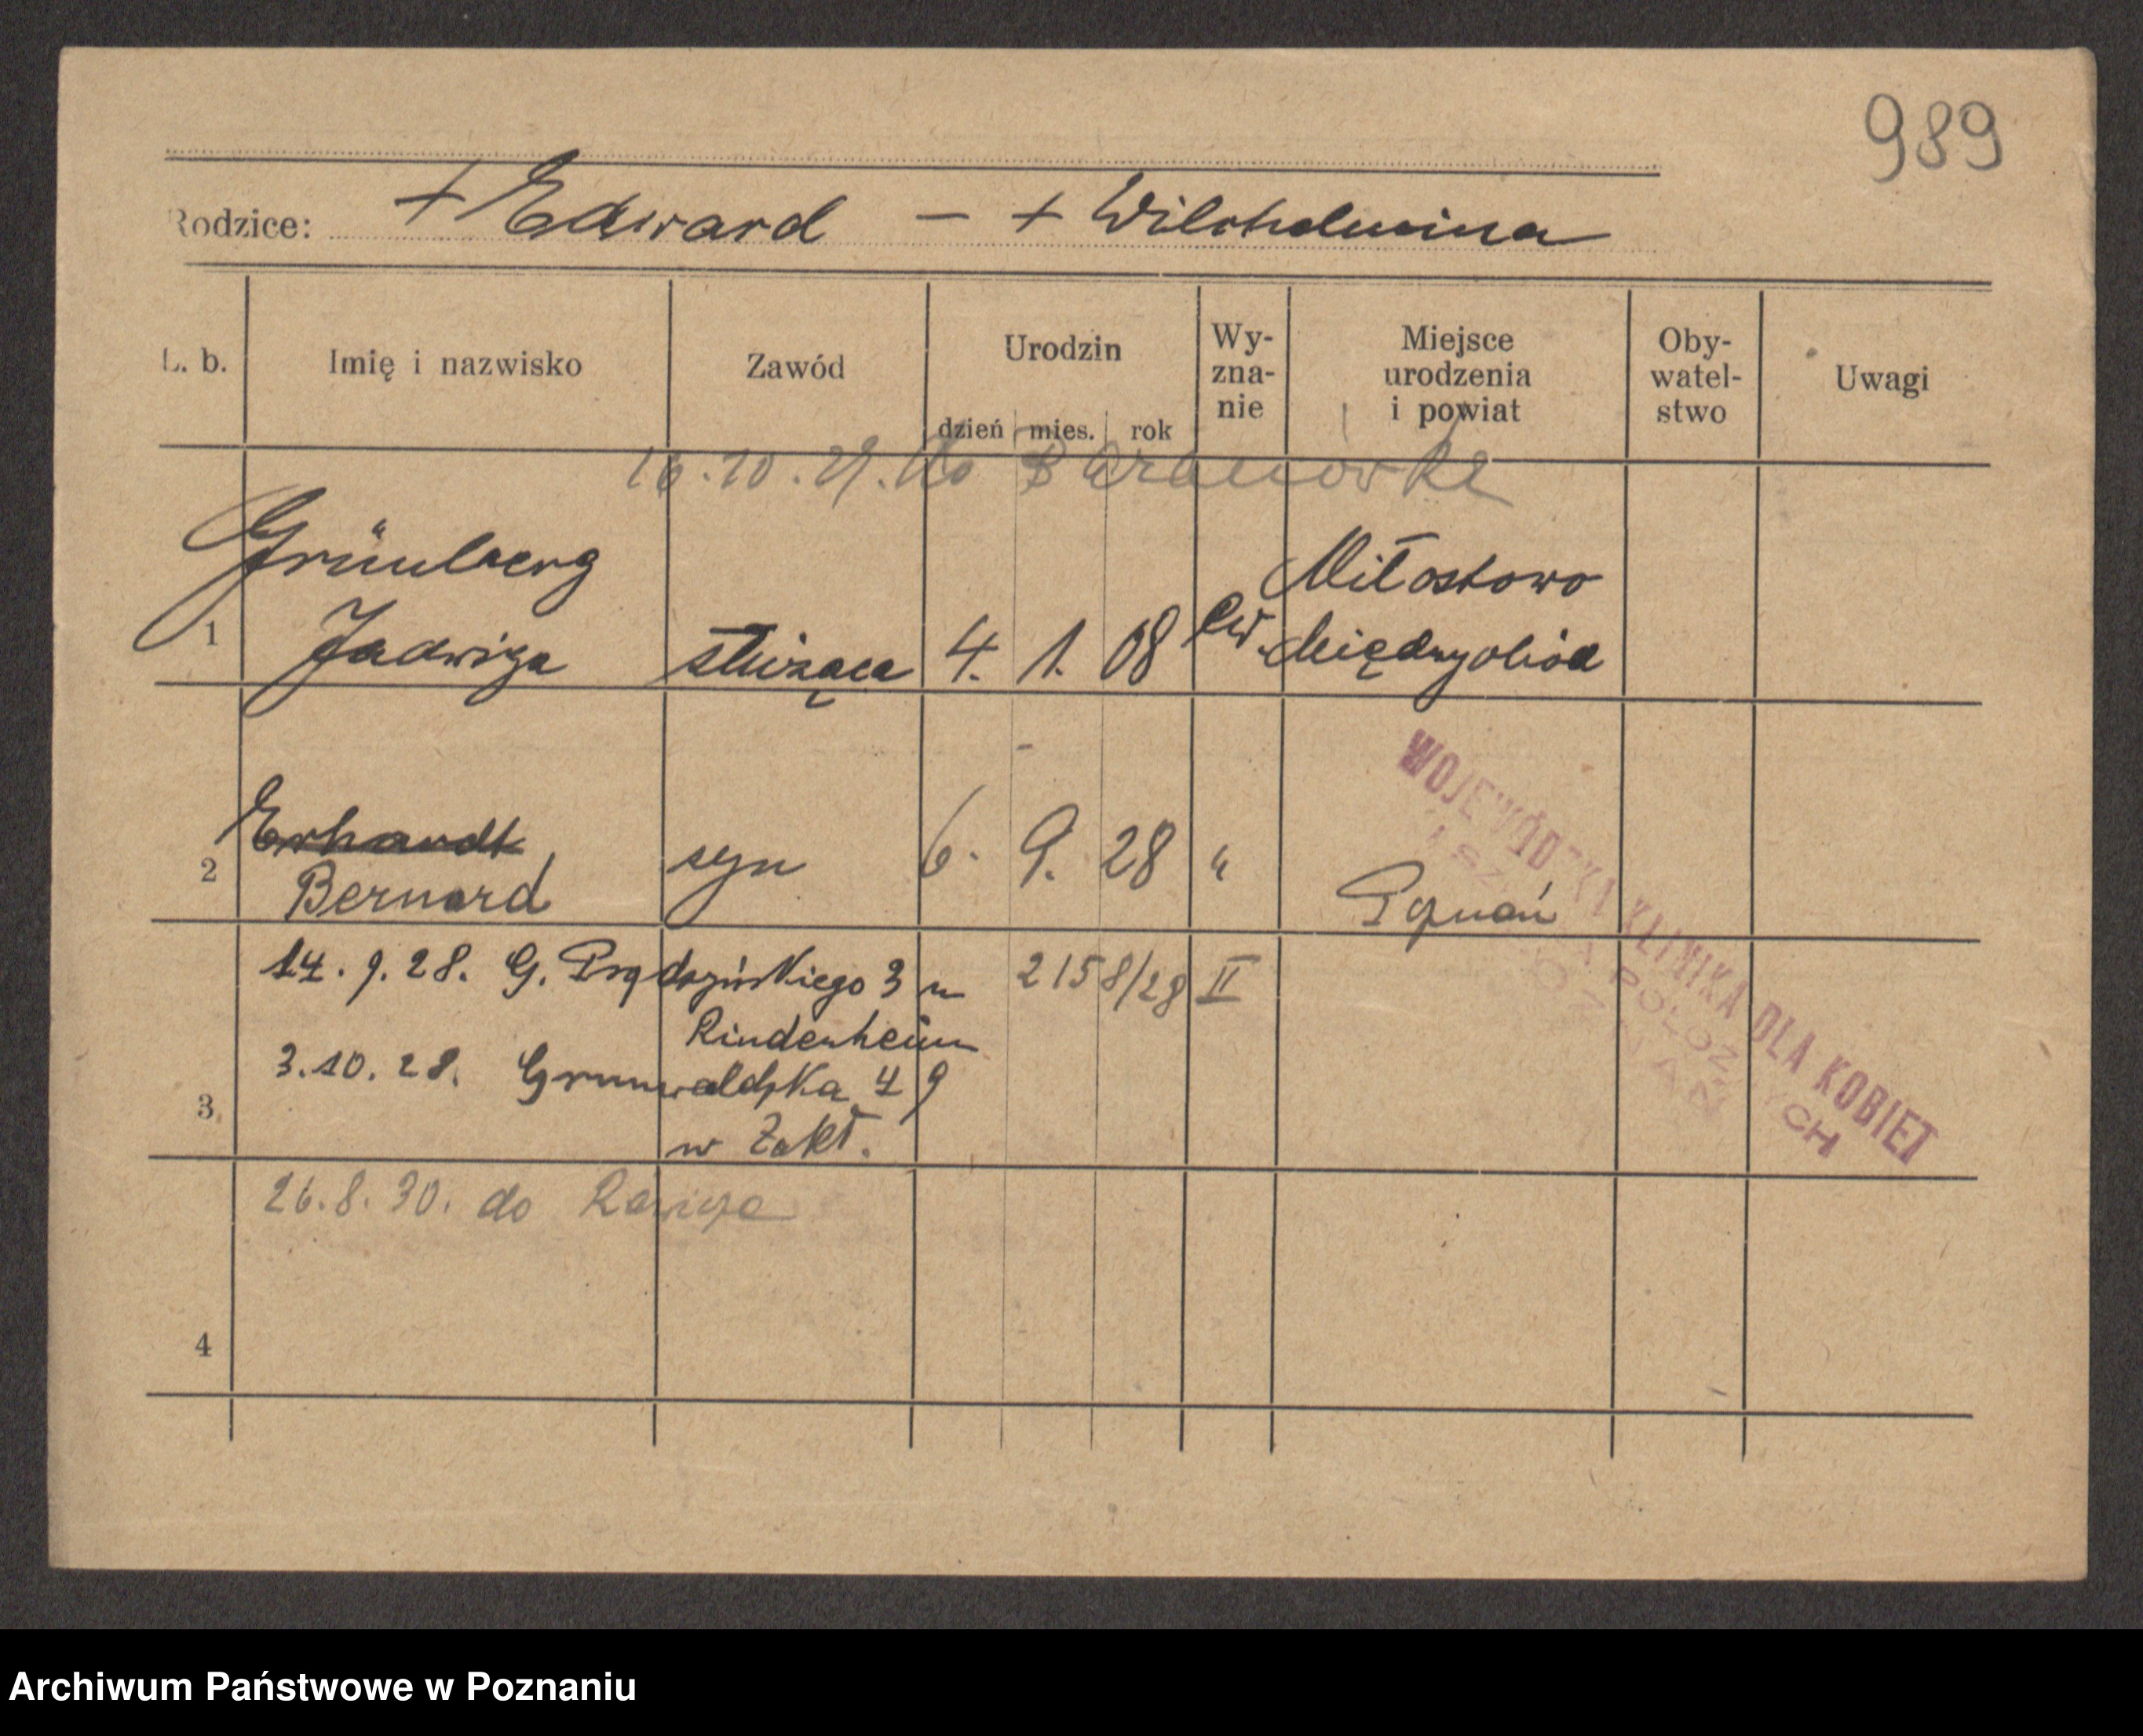 989
Rodzice: + Edward — + Wilchelmina
L. b. Imię i nazwisko Zawód Urodzin dzień mies. rok Wy-zna-nie Miejsce urodzenia i powiat Oby-watel-stwo Uwagi
16.10.29. do
Grünberg Miłostowo
1 Jadwiga służąca 4. 1. 08 ew. Międzychód
Erhardt
2 Bernard syn 6. 9. 28 " Poznań
WOJEWÓDZKA KLINIKA DLA KOBIET
14.9.28. G. Prądzyńskiego 3 u 2158/28 II
Rindenheim
3.10.28. Grunwaldzka 49
3
w Zakł.
26.8.30. do
4
Archiwum Państwowe w Poznaniu